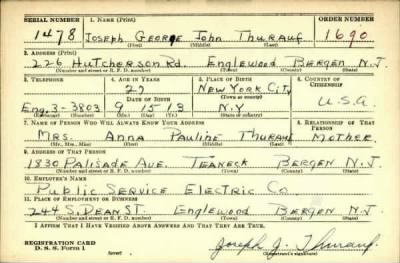 SERIAL NUMBER 1. NAME (Print) ORDER NUMBER
1478 Joseph George John Thurauf 1690
(First) (Middle) (Last)
2. ADDRESS (Print)
226 Hutcherson Rd. Englewood Bergen N.J.
(Number and street or R. F. D. number) (Town) (County) (State)
3. TELEPHONE 4. AGE IN YEARS 5. PLACE OF BIRTH 6. COUNTRY OF CITIZENSHIP
27 New York City
DATE OF BIRTH (Town or county)
Eng. 3-3803 9 15 13 N.Y U.S.A.
(Exchange) (Number) (Mo.) (Day) (Yr.) (State or country)
7. NAME OF PERSON WHO WILL ALWAYS KNOW YOUR ADDRESS 8. RELATIONSHIP OF THAT PERSON
Mrs. Anna Pauline Thurauf Mother
(Mr., Mrs., Miss) (First) (Middle) (Last)
9. ADDRESS OF THAT PERSON
1830 Palisade Ave. Teaneck Bergen N.J
(Number and street or R. F. D. number) (Town) (County) (State)
10. EMPLOYER'S NAME
Public Service Electric Co
11. PLACE OF EMPLOYMENT OR BUSINESS
244 S. Dean St. Englewood Bergen N.J.
(Number and street or R. F. D. number) (Town) (County) (State)
I AFFIRM THAT I HAVE VERIFIED ABOVE ANSWERS AND THAT THEY ARE TRUE.
REGISTRATION CARD
D. S. S. Form 1 (over) Joseph J. Thurauf
(Registrant's signature)